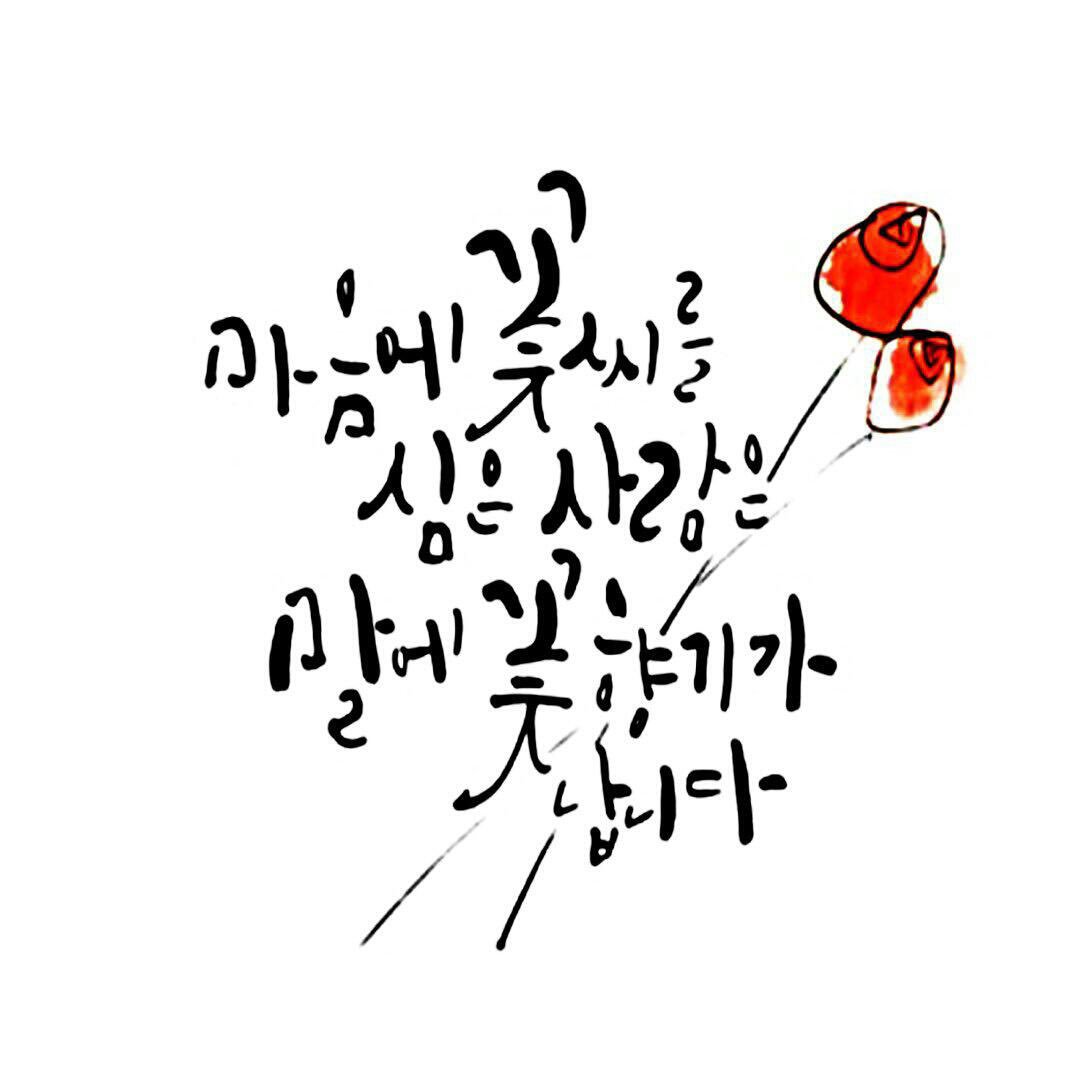 마음에 꽃씨를
심은 사람은
말에 꽃향기가
납니다